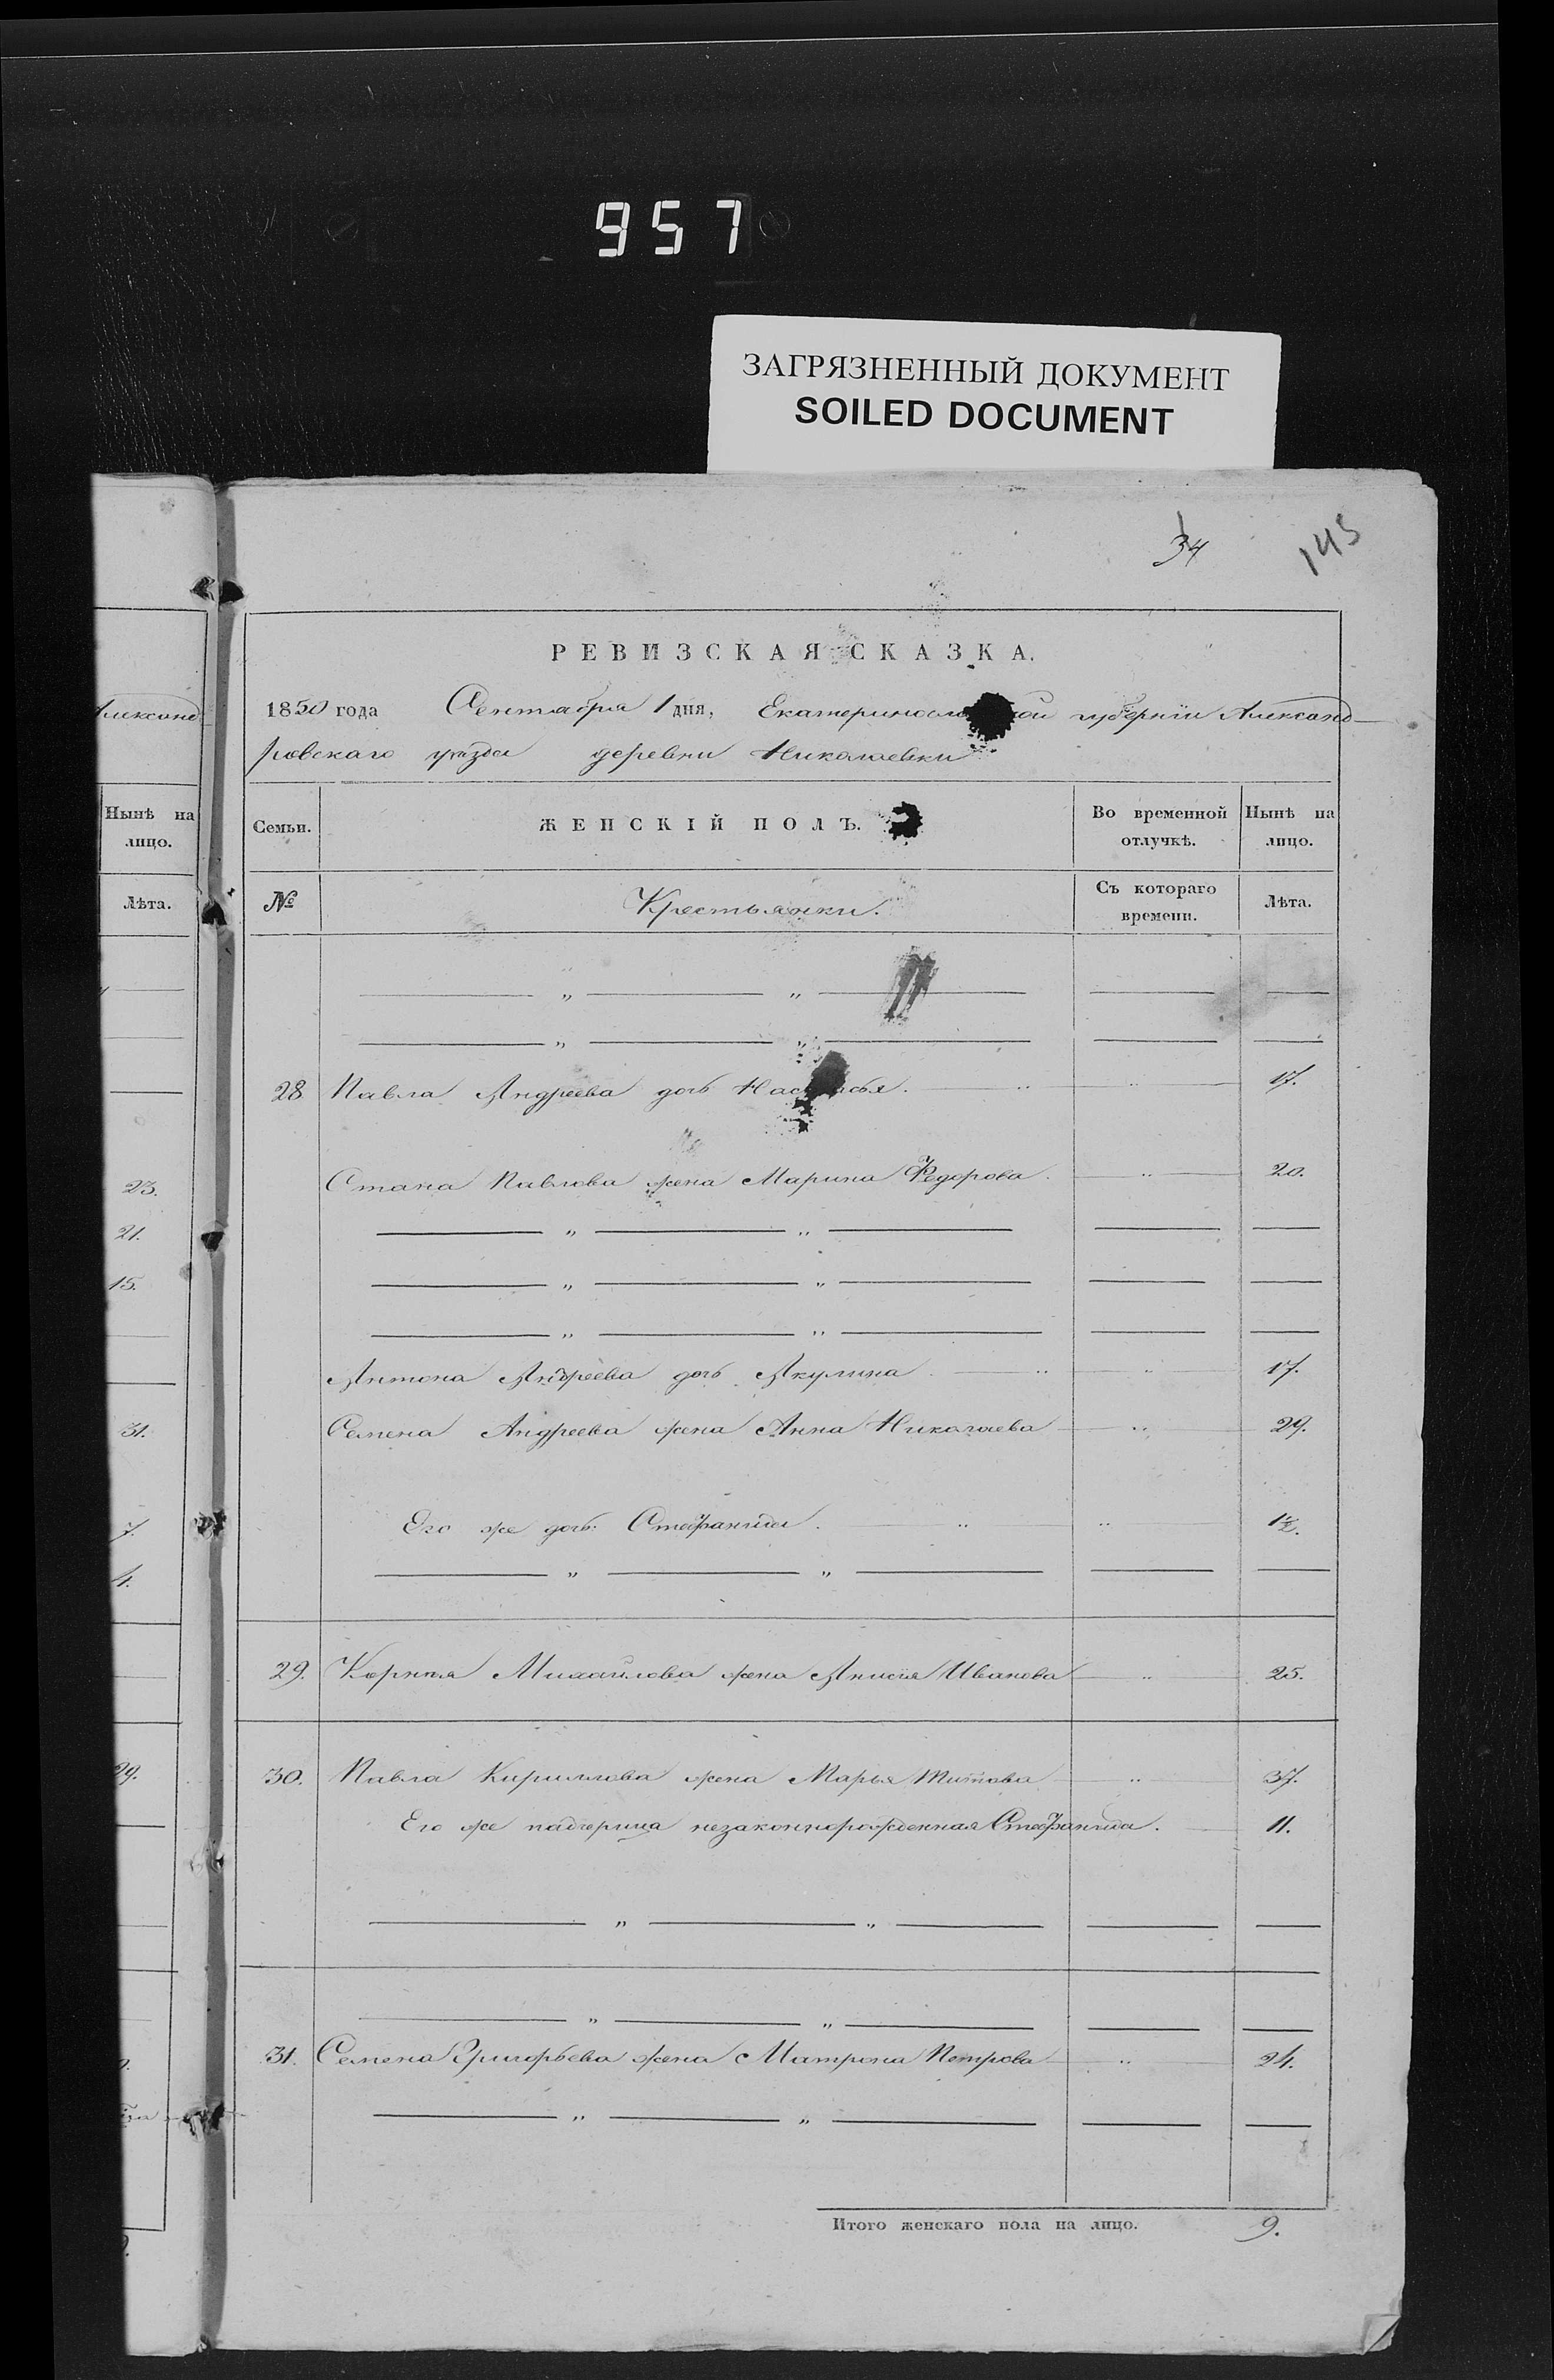 957
ЗАГРЯЗНЕННЫЙ ДОКУМЕНТ
SOILED DOCUMENT
34
145
РЕВИЗСКАЯ СКАЗКА.
Александ
1850 года Сентября 1 дня, Екатеринославской губерніи Александ-
ровскаго уѣзда деревни Николаевки
Нынѣ на лицо.
Семьи. ЖЕНСКІЙ ПОЛЪ. Во временной отлучкѣ. Нынѣ на лицо.
Лѣта.
№ Крестьянки. Съ котораго времени. Лѣта.
28. Павла Андреева дочь Настасья. 17.
23.
Стана Павлова жена Марина Федорова. 20.
21.
15.
Антона Андреева дочь Акулина. 17.
31.
Семена Андреева жена Анна Николаева 29.
7.
Его же дочь: Стефанида. 1½.
4.
29. Корнея Михайлова жена Анисія Иванова 25.
29.
30. Павла Кириллова жена Марья Титова 37.
Его же падчерица незаконнорожденная Стефанида. 11.
31. Семена Григорьева жена Матрона Петрова 24.
Итого женскаго пола на лицо. 9.